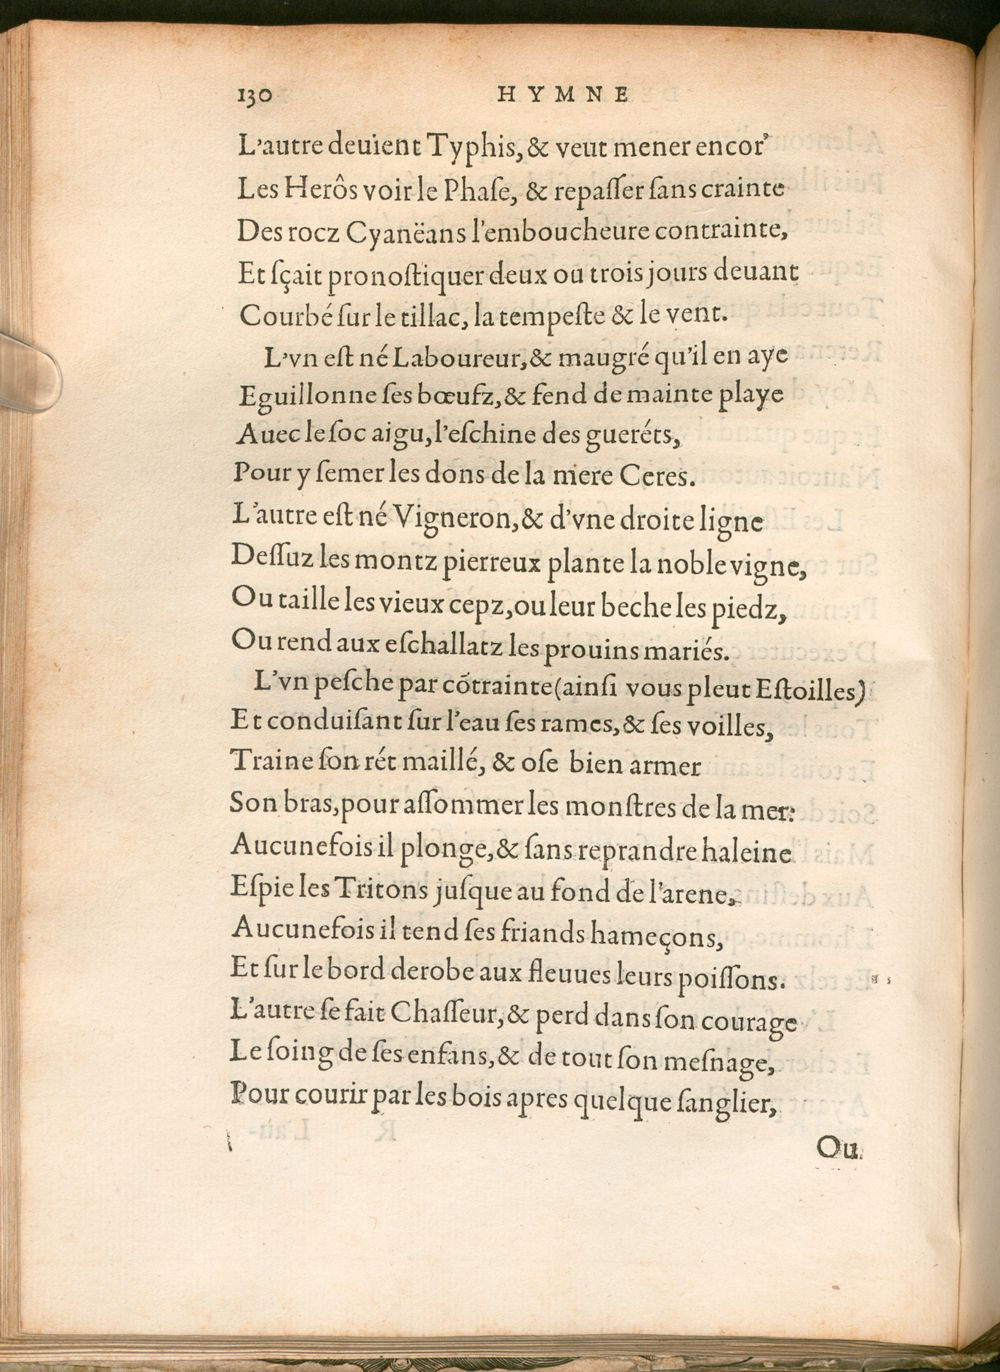 130 HYMNE
L'autre deuient Typhis, & veut mener encor'
Les Herôs voir le Phaſe, & repaſſer ſans crainte
Des rocz Cyanëans l'emboucheure contrainte,
Et ſçait pronoſtiquer deux ou trois jours deuant
Courbé ſur le tillac, la tempeſte & le vent.
L'vn eſt né Laboureur, & maugré qu'il en aye
Eguillonne ſes bœufz, & fend de mainte playe
Auec le ſoc aigu, l'eſchine des gueréts,
Pour y ſemer les dons de la mere Ceres.
L'autre eſt né Vigneron, & d'vne droite ligne
Deſſuz les montz pierreux plante la noble vigne,
Ou taille les vieux cepz, ou leur beche les piedz,
Ou rend aux eſchallatz les prouins mariés.
L'vn peſche par cõtrainte (ainſi vous pleut Eſtoilles)
Et conduiſant ſur l'eau ſes rames, & ſes voilles,
Traine ſon rét maillé, & oſe bien armer
Son bras, pour aſſommer les monſtres de la mer:
Aucunefois il plonge, & ſans reprandre haleine
Eſpie les Tritons juſque au fond de l'arene,
Aucunefois il tend ſes friands hameçons,
Et ſur le bord derobe aux fleuues leurs poiſſons.
L'autre ſe fait Chaſſeur, & perd dans ſon courage
Le ſoing de ſes enfans, & de tout ſon meſnage,
Pour courir par les bois apres quelque ſanglier,
Ou